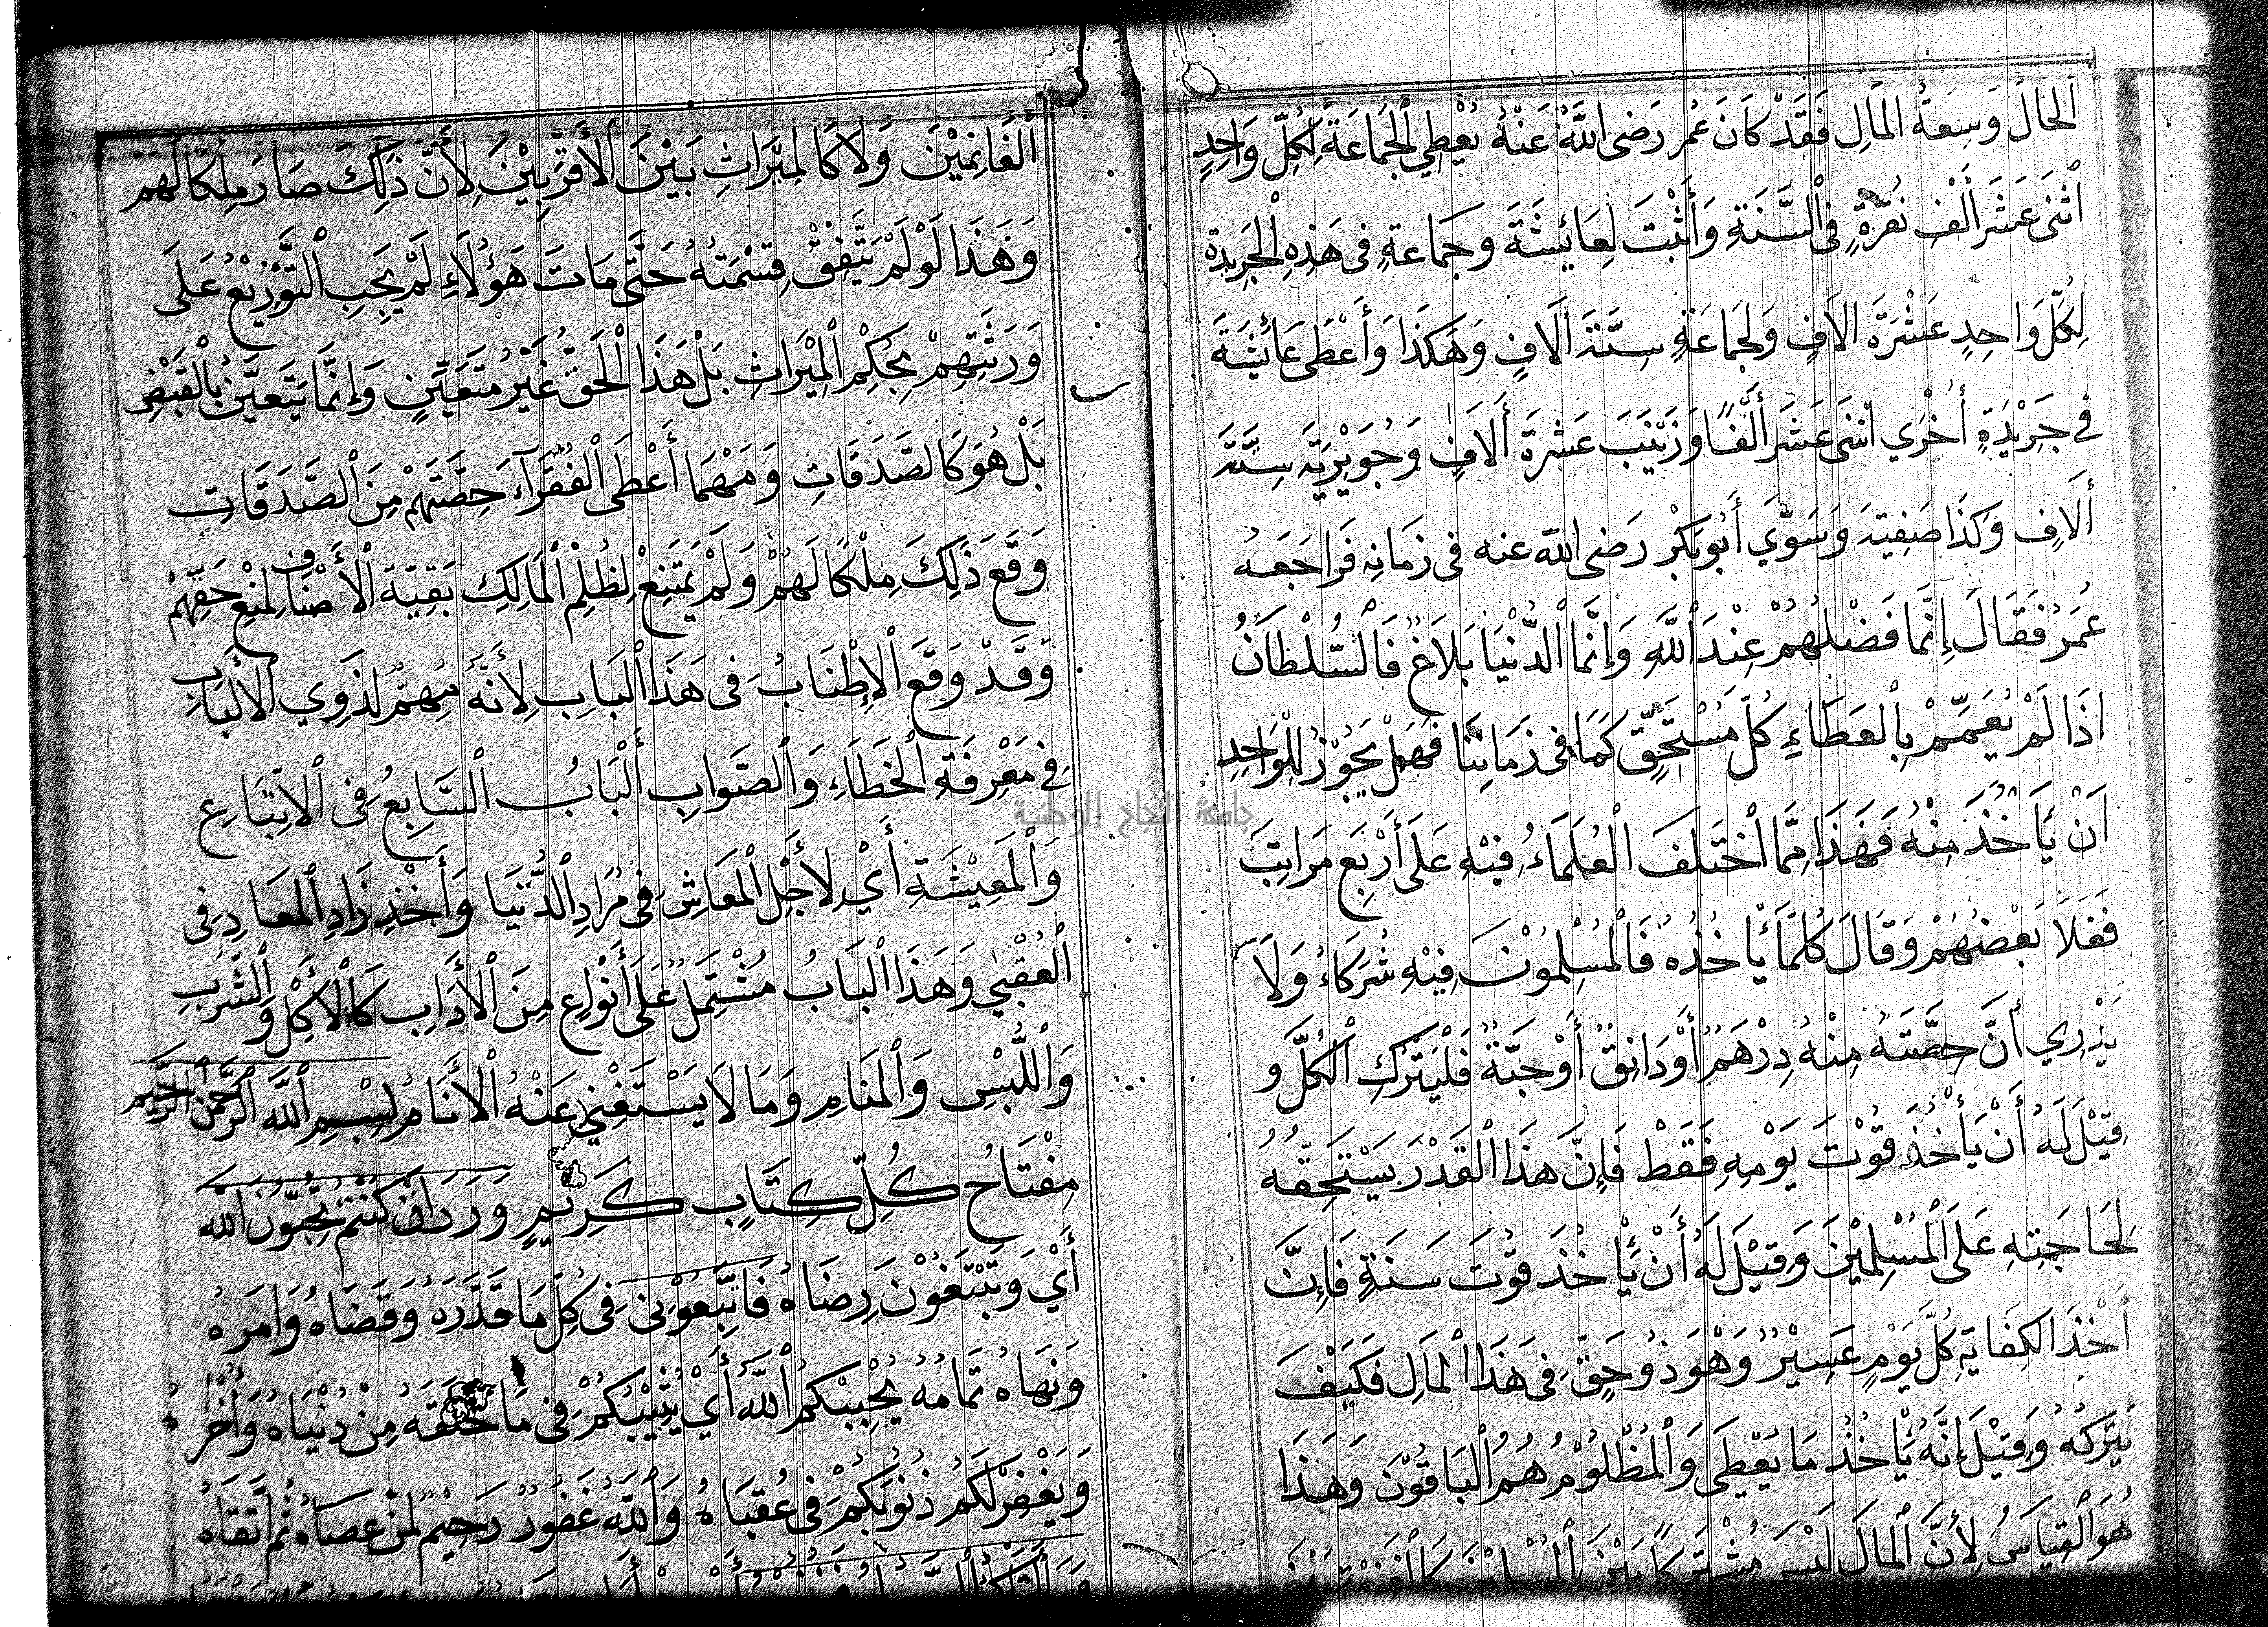 الحال وَسِعَةُ المَالِ فَقَدْ كَانَ عُمر رَضى اللهُ عَنْهُ يُعْطِي الجَمَاعَةَ لِكُلِّ وَاحِدٍ
اثنَى عَشَرَ أَلْف نُقْرَةٍ فى السَّنَةِ وَأَثْبَتَ لِعَائِشَةَ وجَمَاعةٍ فى هَذِهِ الْجَرِيدة
لِكُلِّ وَاحِدٍ عَشْرَةَ الاَفٍ وَلِجَمَاعَةٍ سِتَّةَ آلَافٍ وَهَكَذَا وَأَعْطَى عَائِشَةَ
في جَرِيْدَةٍ أُخْرَي اثنَى عَشَرَ أَلْفًا وَزَيْنَبَ عَشرَةَ أَلَافٍ وَجُوَيْرِيَّة سِتَّة
أَلَافٍ وَكَذَا صَفِيّة وَسَوَّي أَبُو بَكْر رَضى الله عنه فى زمَانِه فَرَاجَعَهُ
عُمَرُ فَقَالَ إِنَّمَا فَضْلُهُمْ عِنْدَ اللَّهِ وَإِنَّمَا الدُّنْيَا بَلَاغٌ فَالسُّلْطَانُ
اذَا لَمْ يُعَمِّمْ بِالْعَطَاءِ كُلَّ مُسْتَحِقٍّ كَمَا فى زمَانِنَا فَهَلْ يَجُوْزُ لِلْوَاحِدِ
اَنْ يَأخُذَ مِنْهُ فَهَذَا مِمَّا اخْتَلَفَ الْعُلَمَاءُ فِيْهِ عَلَى أَرْبَعِ مَرَاتِبَ
فَغَلَا بَعْضُهُمْ وَقَالَ كُلمَا يَأْخُذُهُ فَالْمُسْلِمُوْنَ فِيْهِ شُرَكَاءُ وَلَا
يَدْرِي أنَّ حِصَّتَهُ مِنْهُ دِرْهَمٌ أَوْ دَانِقٌ أَوْ حَبَّةٌ فَلْيَتْرُكِ الْكُلَّ و
قِيْلَ لَهُ أَنْ يَأْخُذَ قُوْتَ يَوْمِهِ فَقَطْ فَإِنَّ هَذَا الْقَدْرَ يَسْتَحِقُّهُ
لِحَاجَتِهِ عَلَى الْمُسْلِمِيْنَ وَقِيْلَ لَهُ أَنْ يَأْخُذَ قُوْتَ سَنَةٍ فَإِنَّ
أَخْذَ الكِفَايَةِ كُلَّ يَوْمٍ عَسِيْرٌ وَهْوَ ذُو حَقٍّ فِى هَذَا الْمَالِ فَكَيْفَ
يَتْركُهُ وَقِيْلَ إنَّهُ يَأْخُذُ مَا يُعْطِىَ وَالْمَظْلُوْمُ هُمُ الْبَاقُوْنَ وَهَذَا
هُوَ الْقِيَاسُ لِأَنَّ الْمَالَ لَيْسَ مُشْتَرِكًا بَيْنَ الْمُسْلِمِيْنَ كَالْغَنِيْمَةِ بَيْنَ
الْغَانِمِيْنَ وَلَا كَالمِيْرَاثِ بَيْنَ الأَقْرَبِيْنَ لِأَنَّ ذَلِكَ صَارَ مِلْكًا لَهُمْ
وَهَذَا لَوْ لَمْ يَتَّفِقْ قِسْمَتهُ حَتَّى مَاتَ هَؤُلَاءِ لَمْ يَجِبِ التَّوْزِيْعُ عَلَى
وَرَثَتِهِمْ بِحُكْمِ الْمِيْرَاثِ بَلْ هَذَا الْحَقُّ غَيْرُ مُتَعَيِّنٍ وَإِنَّمَا يَتَعَيَّنُ بِالْقَبْضِ
بَلْ هُوَ كَالصَّدَقَاتِ وَمَهْمَا أَعْطَى الْفُقَرَآءَ حِصَّتَهُمْ مِنَ الصَّدَقَاتِ
وَقَعَ ذَلِكَ مِلْكًا لَهُمْ وَلَمْ يَمْتَنِعْ لِظُلِمْ الْمَالِكِ بَقِيَّةَ الْأَصْنَافِ لِمَنْعِ حَقِّهِمْ
وَقَدْ وَقَعَ الْإِطْنَابُ فى هَذَا الْبَابِ لِأَنَّهُ مُهِمٌّ لذَوِي الألْبَابِ
فى مَعْرِفَةِ الخَطَاءِ وَالصَّوابِ أَلْبَابُ السَّابِعُ فى الاِتِّبَاعِ
وَالْمَعِيْشَةِ أَيْ لِأَجْلِ الْمَعَاشِ فِى مُرَادِ الدُّنْيَا وَأَخْذِ زَادِ الْمَعَادِ فى
الْعُقْبٰى وَهَذَا البَابُ مُشْتَمِلٌ عَلَى أَنْوَاعٍ مِنَ الْأَدَابِ كَالْأَكْلِ وَالشُّرْبِ
وَاللُّبْسِ وَالْمَنَامِ وَمَا لَا يَسْتَغْنِي عَنْهُ الْأَنَامُ بِسْمِ اللَّهِ الرَّحْمَنِ الرَّحِيْمِ
مِفْتَاحُ كُلِّ كِتَابٍ كَرِيْمٍ وَرَدَ انْ كُنْتُمْ تُحِبُّوْنَ اللهَ
أَيْ وَتَبْتَغُوْنَ رِضَاهُ فَاتَّبِعُوْنِى فى كُلِّ مَا قَدَّرَهُ وَقَضَاهُ وَامَرهُ
وَنَهَاهُ تَمَامُهُ يُحْبِبْكُمُ اللَّهُ أَيْ يُثِيْبُكُمْ فى مَا خَلَقَهُ مِنْ دُنْيَاهُ وَأُخْرَاهُ
وَيَغْفِرْ لَكُمْ ذُنُوْبَكُمْ فى عُقْبَاهُ وَاللَّهُ غَفُوْرٌ رَحِيْمٌ لِمَنْ عَصَاهُ ثُمَّ اتَّقَاهُ
جامعة النجاح الوطنية